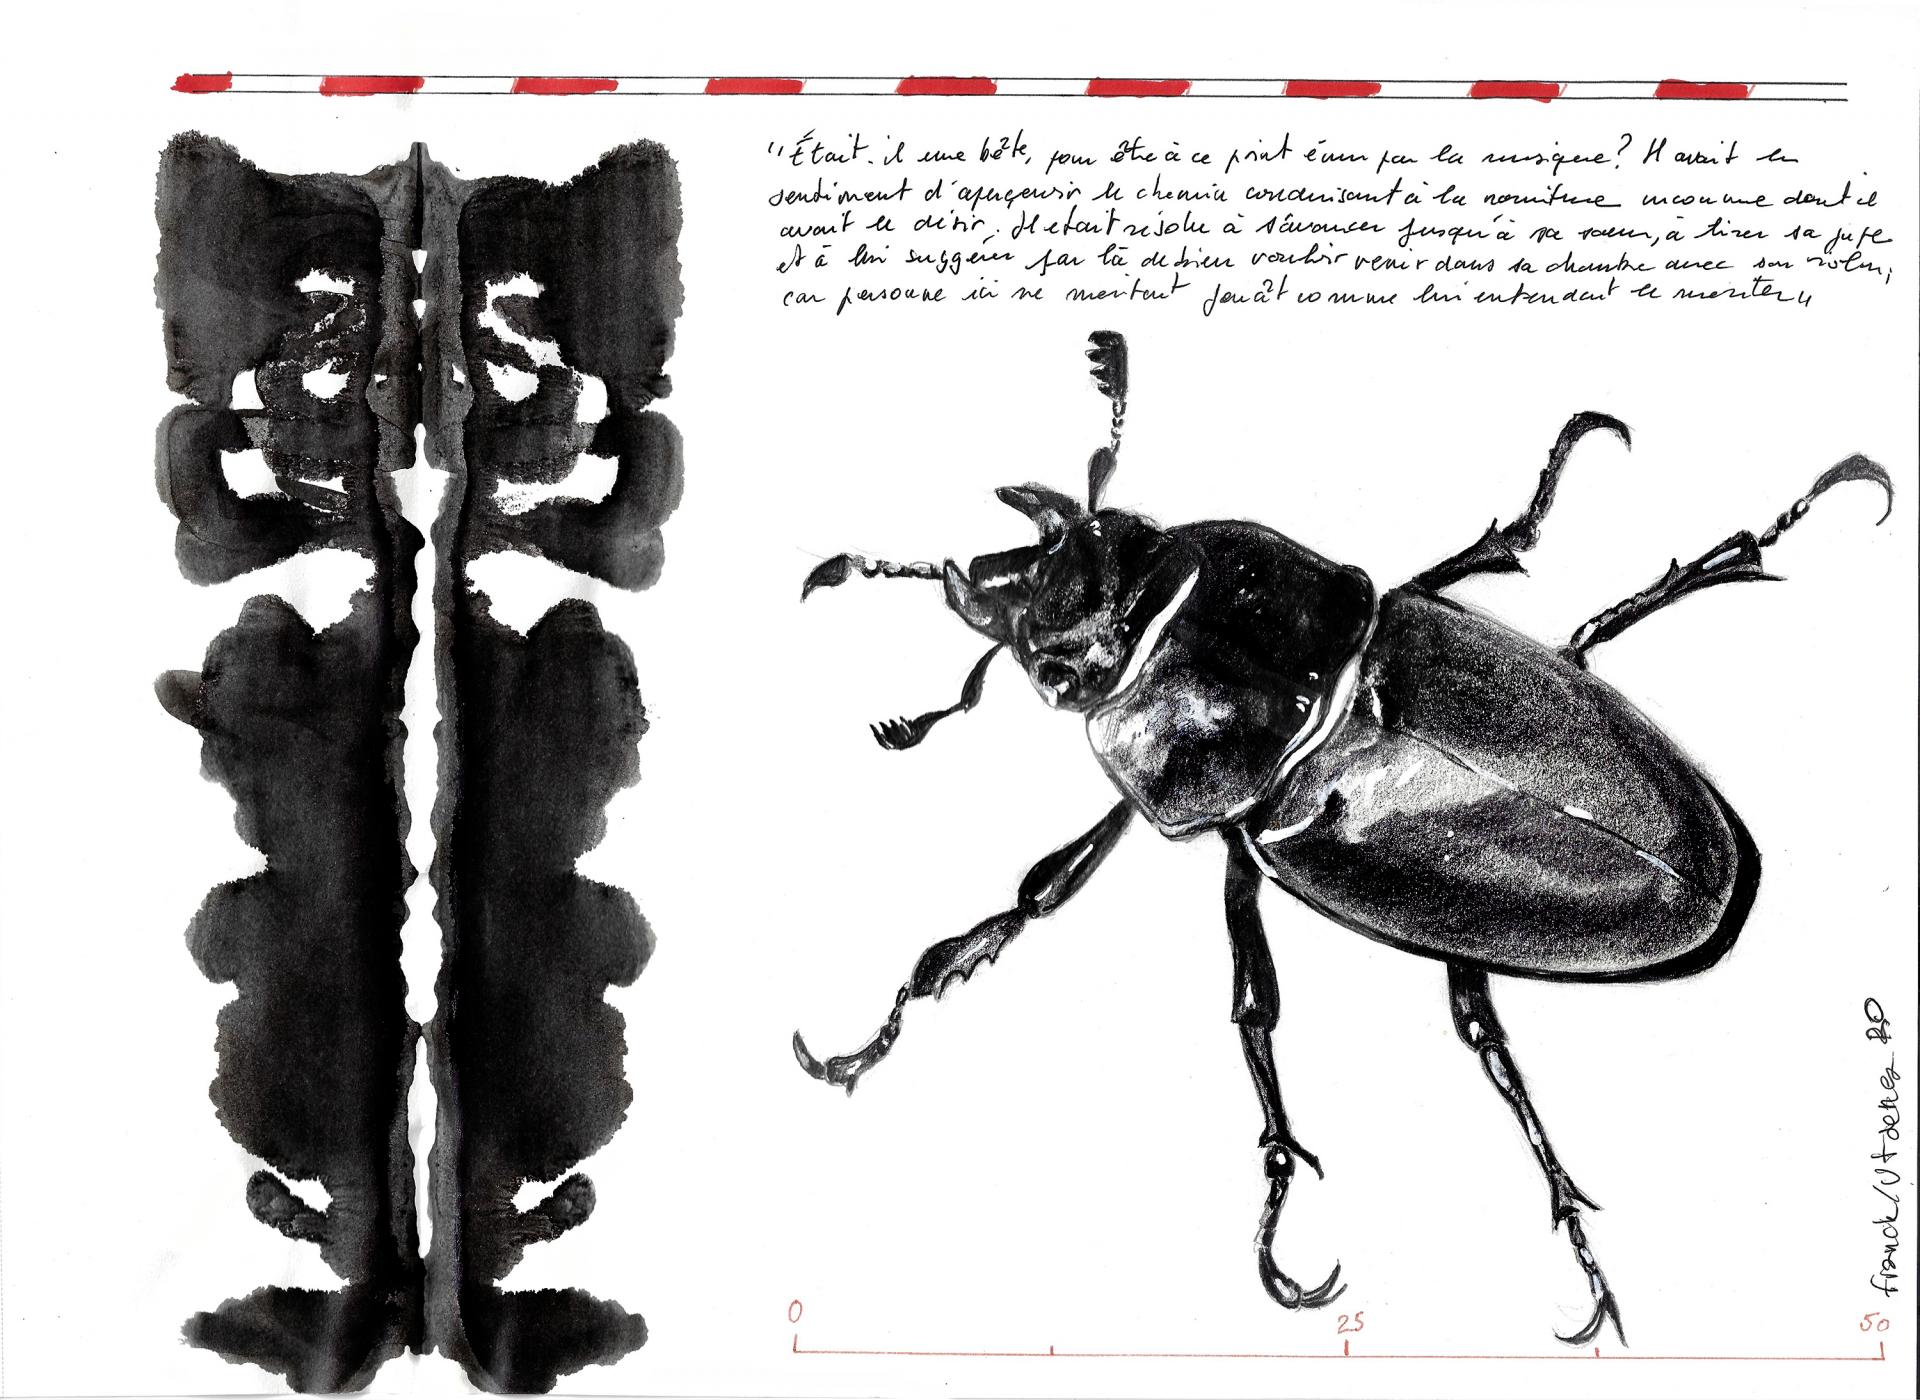 "Était-il une bête, pour être à ce point ému par la musique? Il avait le
sentiment d'apercevoir le chemin conduisant à la nourriture inconnue dont il
avait le désir. Il était résolu à s'avancer jusqu'à sa sœur, à tirer sa jupe
et à lui suggérer par là de bien vouloir venir dans sa chambre avec son violon,
car personne ici ne méritait jouât comme lui entendait le mériter"
0 25 50
Franck